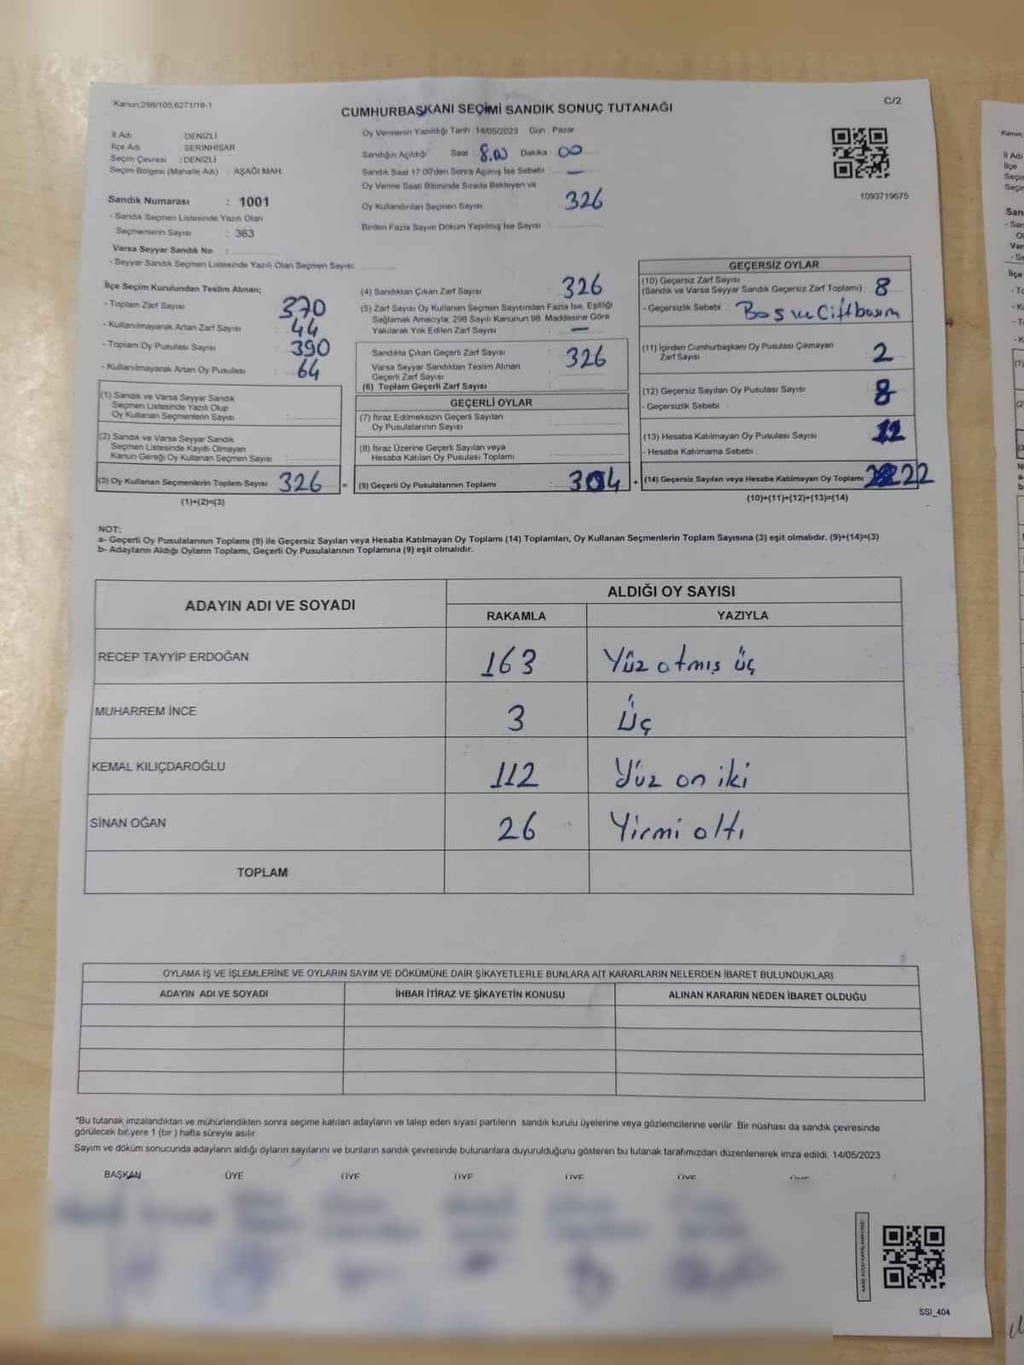 Kanun;298/105;6271/18-1
C/2
CUMHURBAŞKANI SEÇİMİ SANDIK SONUÇ TUTANAĞI
İl Adı DENİZLİ
İlçe Adı SERİNHİSAR
Seçim Çevresi : DENİZLİ
Seçim Bölgesi (Mahalle Adı) : AŞAĞI MAH.
Sandık Numarası : 1001
- Sandık Seçmen Listesinde Yazılı Olan
Seçmenlerin Sayısı : 363
Varsa Seyyar Sandık No
- Seyyar Sandık Seçmen Listesinde Yazılı Olan Seçmen Sayısı
Oy Vermenin Yapıldığı Tarih 14/05/2023 Gün : Pazar
Sandığın Açıldığı Saat 8.00 Dakika 00
Sandık Saat 17.00'den Sonra Açılmış İse Sebebi : —
Oy Verme Saati Bitiminde Sırada Bekleyen ve
Oy Kullandırılan Seçmen Sayısı 326
Birden Fazla Sayım Döküm Yapılmış İse Sayısı
1093719675
İlçe Seçim Kurulundan Teslim Alınan;
- Toplam Zarf Sayısı 370
- Kullanılmayarak Artan Zarf Sayısı 44
- Toplam Oy Pusulası Sayısı 390
- Kullanılmayarak Artan Oy Pusulası 64
(1) Sandık ve Varsa Seyyar Sandık
Seçmen Listesinde Yazılı Olup
Oy Kullanan Seçmenlerin Sayısı
(2) Sandık ve Varsa Seyyar Sandık
Seçmen Listesinde Kayıtlı Olmayan
Kanun Gereği Oy Kullanan Seçmen Sayısı
(3) Oy Kullanan Seçmenlerin Toplam Sayısı 326 =
(1)+(2)=(3)
(4) Sandıktan Çıkan Zarf Sayısı 326
(5) Zarf Sayısı Oy Kullanan Seçmen Sayısından Fazla İse, Eşitliği
Sağlamak Amacıyla; 298 Sayılı Kanunun 98. Maddesine Göre
Yakılarak Yok Edilen Zarf Sayısı : —
Sandıkta Çıkan Geçerli Zarf Sayısı 326
Varsa Seyyar Sandıktan Teslim Alınan
Geçerli Zarf Sayısı
(6) Toplam Geçerli Zarf Sayısı
GEÇERLİ OYLAR
(7) İtiraz Edilmeksizin Geçerli Sayılan
Oy Pusulasının Sayısı
(8) İtiraz Üzerine Geçerli Sayılan veya
Hesaba Katılan Oy Pusulası Toplamı
(9) Geçerli Oy Pusulalarının Toplamı : 304 +
GEÇERSİZ OYLAR
(10) Geçersiz Zarf Sayısı
(Sandık ve Varsa Seyyar Sandık Geçersiz Zarf Toplamı) 8
- Geçersizlik Sebebi : Boş ve Çift basım
(11) İçinden Cumhurbaşkanı Oy Pusulası Çıkmayan
Zarf Sayısı 2
(12) Geçersiz Sayılan Oy Pusulası Sayısı 8
- Geçersizlik Sebebi
(13) Hesaba Katılmayan Oy Pusulası Sayısı
- Hesaba Katılmama Sebebi
(14) Geçersiz Sayılan veya Hesaba Katılmayan Oy Toplamı 22
(10)+(11)+(12)+(13)=(14)
NOT:
a- Geçerli Oy Pusulalarının Toplamı (9) ile Geçersiz Sayılan veya Hesaba Katılmayan Oy Toplamı (14) Toplamları, Oy Kullanan Seçmenlerin Toplam Sayısına (3) eşit olmalıdır. (9)+(14)=(3)
b- Adayların Aldığı Oyların Toplamı, Geçerli Oy Pusulalarının Toplamına (9) eşit olmalıdır.
ADAYIN ADI VE SOYADI ALDIĞI OY SAYISI
RAKAMLA YAZIYLA
RECEP TAYYİP ERDOĞAN 163 Yüz atmış üç
MUHARREM İNCE 3 Üç
KEMAL KILIÇDAROĞLU 112 Yüz on iki
SİNAN OĞAN 26 Yirmi altı
TOPLAM
OYLAMA İŞ VE İŞLEMLERİNE VE OYLARIN SAYIM VE DÖKÜMÜNE DAİR ŞİKAYETLERLE BUNLARA AİT KARARLARIN NELERDEN İBARET BULUNDUKLARI
ADAYIN ADI VE SOYADI İHBAR İTİRAZ VE ŞİKAYETİN KONUSU ALINAN KARARIN NEDEN İBARET OLDUĞU
*Bu tutanak imzalandıktan ve mühürlendikten sonra seçime katılan adayların ve talep eden siyasi partilerin sandık kurulu üyelerine veya gözlemcilerine verilir. Bir nüshası da sandık çevresinde
görülecek bir yere 1 (bir) hafta süreyle asılır.
Sayım ve döküm sonucunda adayların aldığı oyların sayılarını ve bunların sandık çevresinde bulunanlara duyurulduğunu gösteren bu tutanak tarafımızdan düzenlenerek imza edildi. 14/05/2023
BAŞKAN ÜYE ÜYE ÜYE ÜYE ÜYE ÜYE
SSI_404